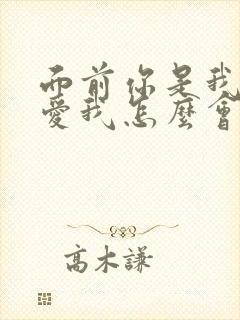 而前你是我
愛我怎麼會
高木謙